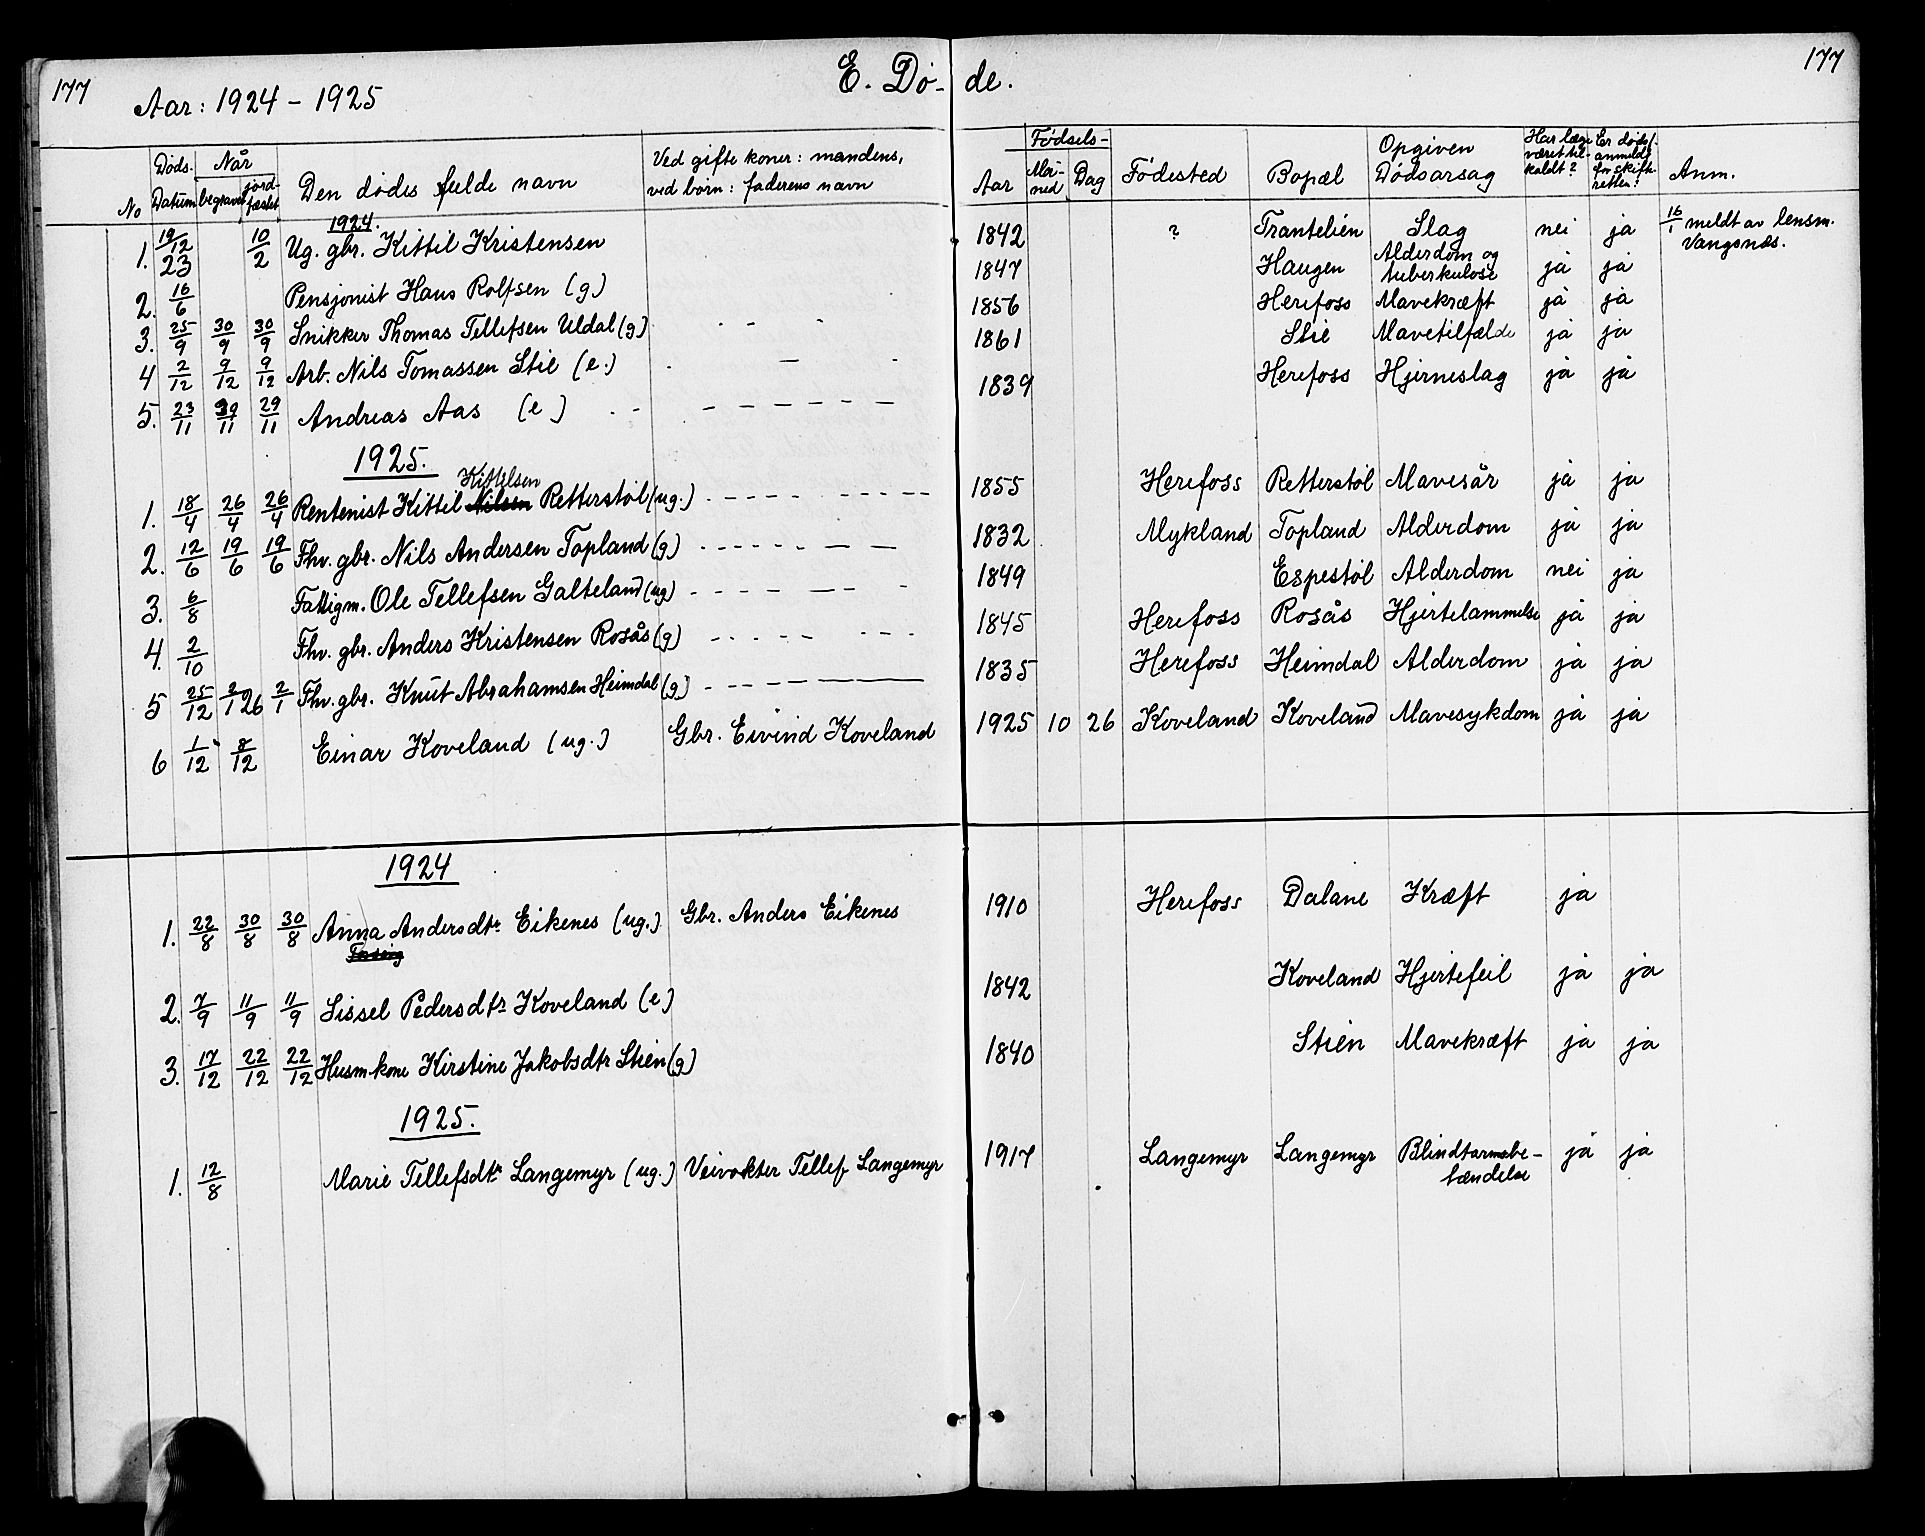 177 Aar: 1924 - 1925 E. Dø- de. 177
No Døds-Datum Når begravet jord-fæstet Den dødes fulde navn Ved gifte koner: mandens, ved børn: faderens navn Aar Fødsels- Må-ned Dag Fødested Bopæl Opgiven Dødsarsag Har læge været til-kaldt? Er dødsf. anmeldt for skifte-retten? Anm.
1924.
1. 19/12 23 10/2 Ug. gbr. Kittil Kristensen 1842 ? Trantelien Slag nei ja 16/1 meldt av lensm. Vangsnæs.
2. 16/6 Pensjonist Hans Rolfsen (g) 1847 Haugen Alderdom og tuberkulose ja ja
3. 25/9 30/9 30/9 Snikker Thomas Tellefsen Uldal (g) 1856 Herefoss Mavekræft ja ja
4 2/12 9/12 9/12 Arb. Nils Tomassen Stie (e.) 1861 Stie Mavetilfælde ja ja
5. 23/11 29/11 29/11 Andreas Aas (e) 1839 Herefoss Hjerneslag ja ja
1925.
Kittelsen
1. 18/4 26/4 26/4 Rentenist Kittil Nilsen Retterstøl (ug.) 1855 Herefoss Retterstøl Mavesår ja ja
2. 12/6 19/6 19/6 Fhv. gbr. Nils Andersen Topland (g) 1832 Mykland Topland Alderdom ja ja
3. 6/8 Fattigm. Ole Tellefsen Galteland (ug) 1849 Espestøl Alderdom nei ja
4. 2/10 Fhv. gbr. Anders Kristensen Rosås (g) 1845 Herefoss Rosås Hjertelammelse ja ja
5 25/12 2/1 26 2/1 Fhv. gbr. Knut Abrahamsen Heimdal (g) 1835 Herefoss Heimdal Alderdom ja ja
6 1/12 8/12 Einar Koveland (ug.) Gbr. Eivind Koveland 1925 10 26 Koveland Koveland Mavesykdom ja ja
1924
1. 22/8 30/8 30/8 Anna Andersdtr Eikenes (ug.) Gbr. Anders Eikenes 1910 Herefoss Dalane Kræft ja
2. 7/9 11/9 11/9 Sissel Pedersdtr Koveland (e) 1842 Koveland Hjertefeil ja ja
3. 17/12 22/12 22/12 Husmkone Kirstine Jakobsdtr Stien (g) 1840 Stien Mavekræft ja ja
1925.
1. 12/8 Marie Tellefsdtr Langemyr (ug.) Veivokter Tellef Langemyr 1917 Langemyr Langemyr Blindtarmsbe-tændelse ja ja